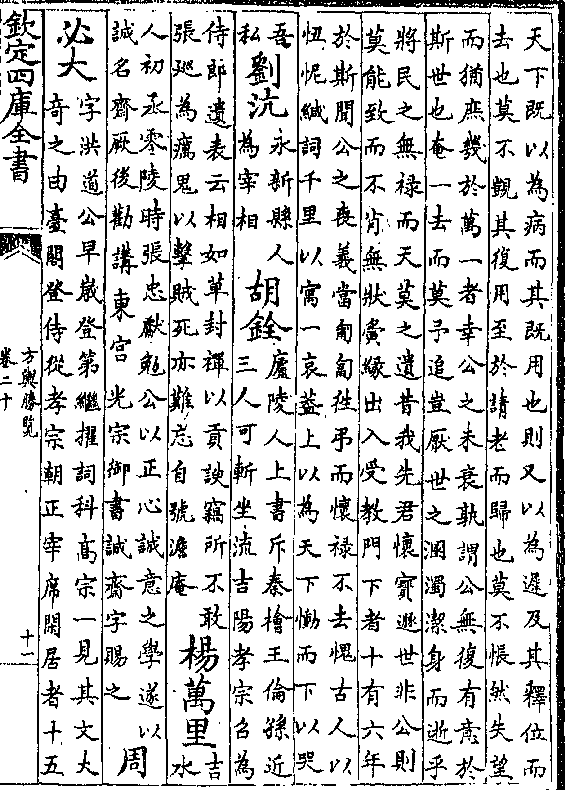 天下既以為病而其既用也則又以為遲及其釋位而
去也莫不覬其復用至於請老而歸也莫不悵然失望
而猶庶幾於萬一者幸公之未衰孰謂公無復有意於
斯世也奄一去而莫予追豈厭世之溷濁潔身而逝乎
將民之無祿而天莫之遺昔我先君懷寶遯世非公則
莫能致而不肖無狀夤緣出入受教門下者十有六年
於斯聞公之喪義當匍匐往弔而懷祿不去愧古人以
忸怩緘詞千里以寓一哀葢上以為天下慟而下以哭
吾
私劉沆永新縣人
為宰相胡銓廬陵人上書斥秦檜王倫孫近
三人可斬坐流吉陽孝宗召為
侍郎遺表云相如草封禪以貢諛竊所不敢
張廵為癘鬼以擊賊死亦難忘自號澹庵楊萬里吉
水
人初丞零陵時張忠獻勉公以正心誠意之學遂以
誠名齋厥後勸講東宮光宗御書誠齋字賜之周
必大字洪道公早嵗登第繼擢詞科高宗一見其文大
竒之由臺閣登侍從孝宗朝正宰席閒居者十五
欽定四庫全書
方輿勝覽
卷二十
十一